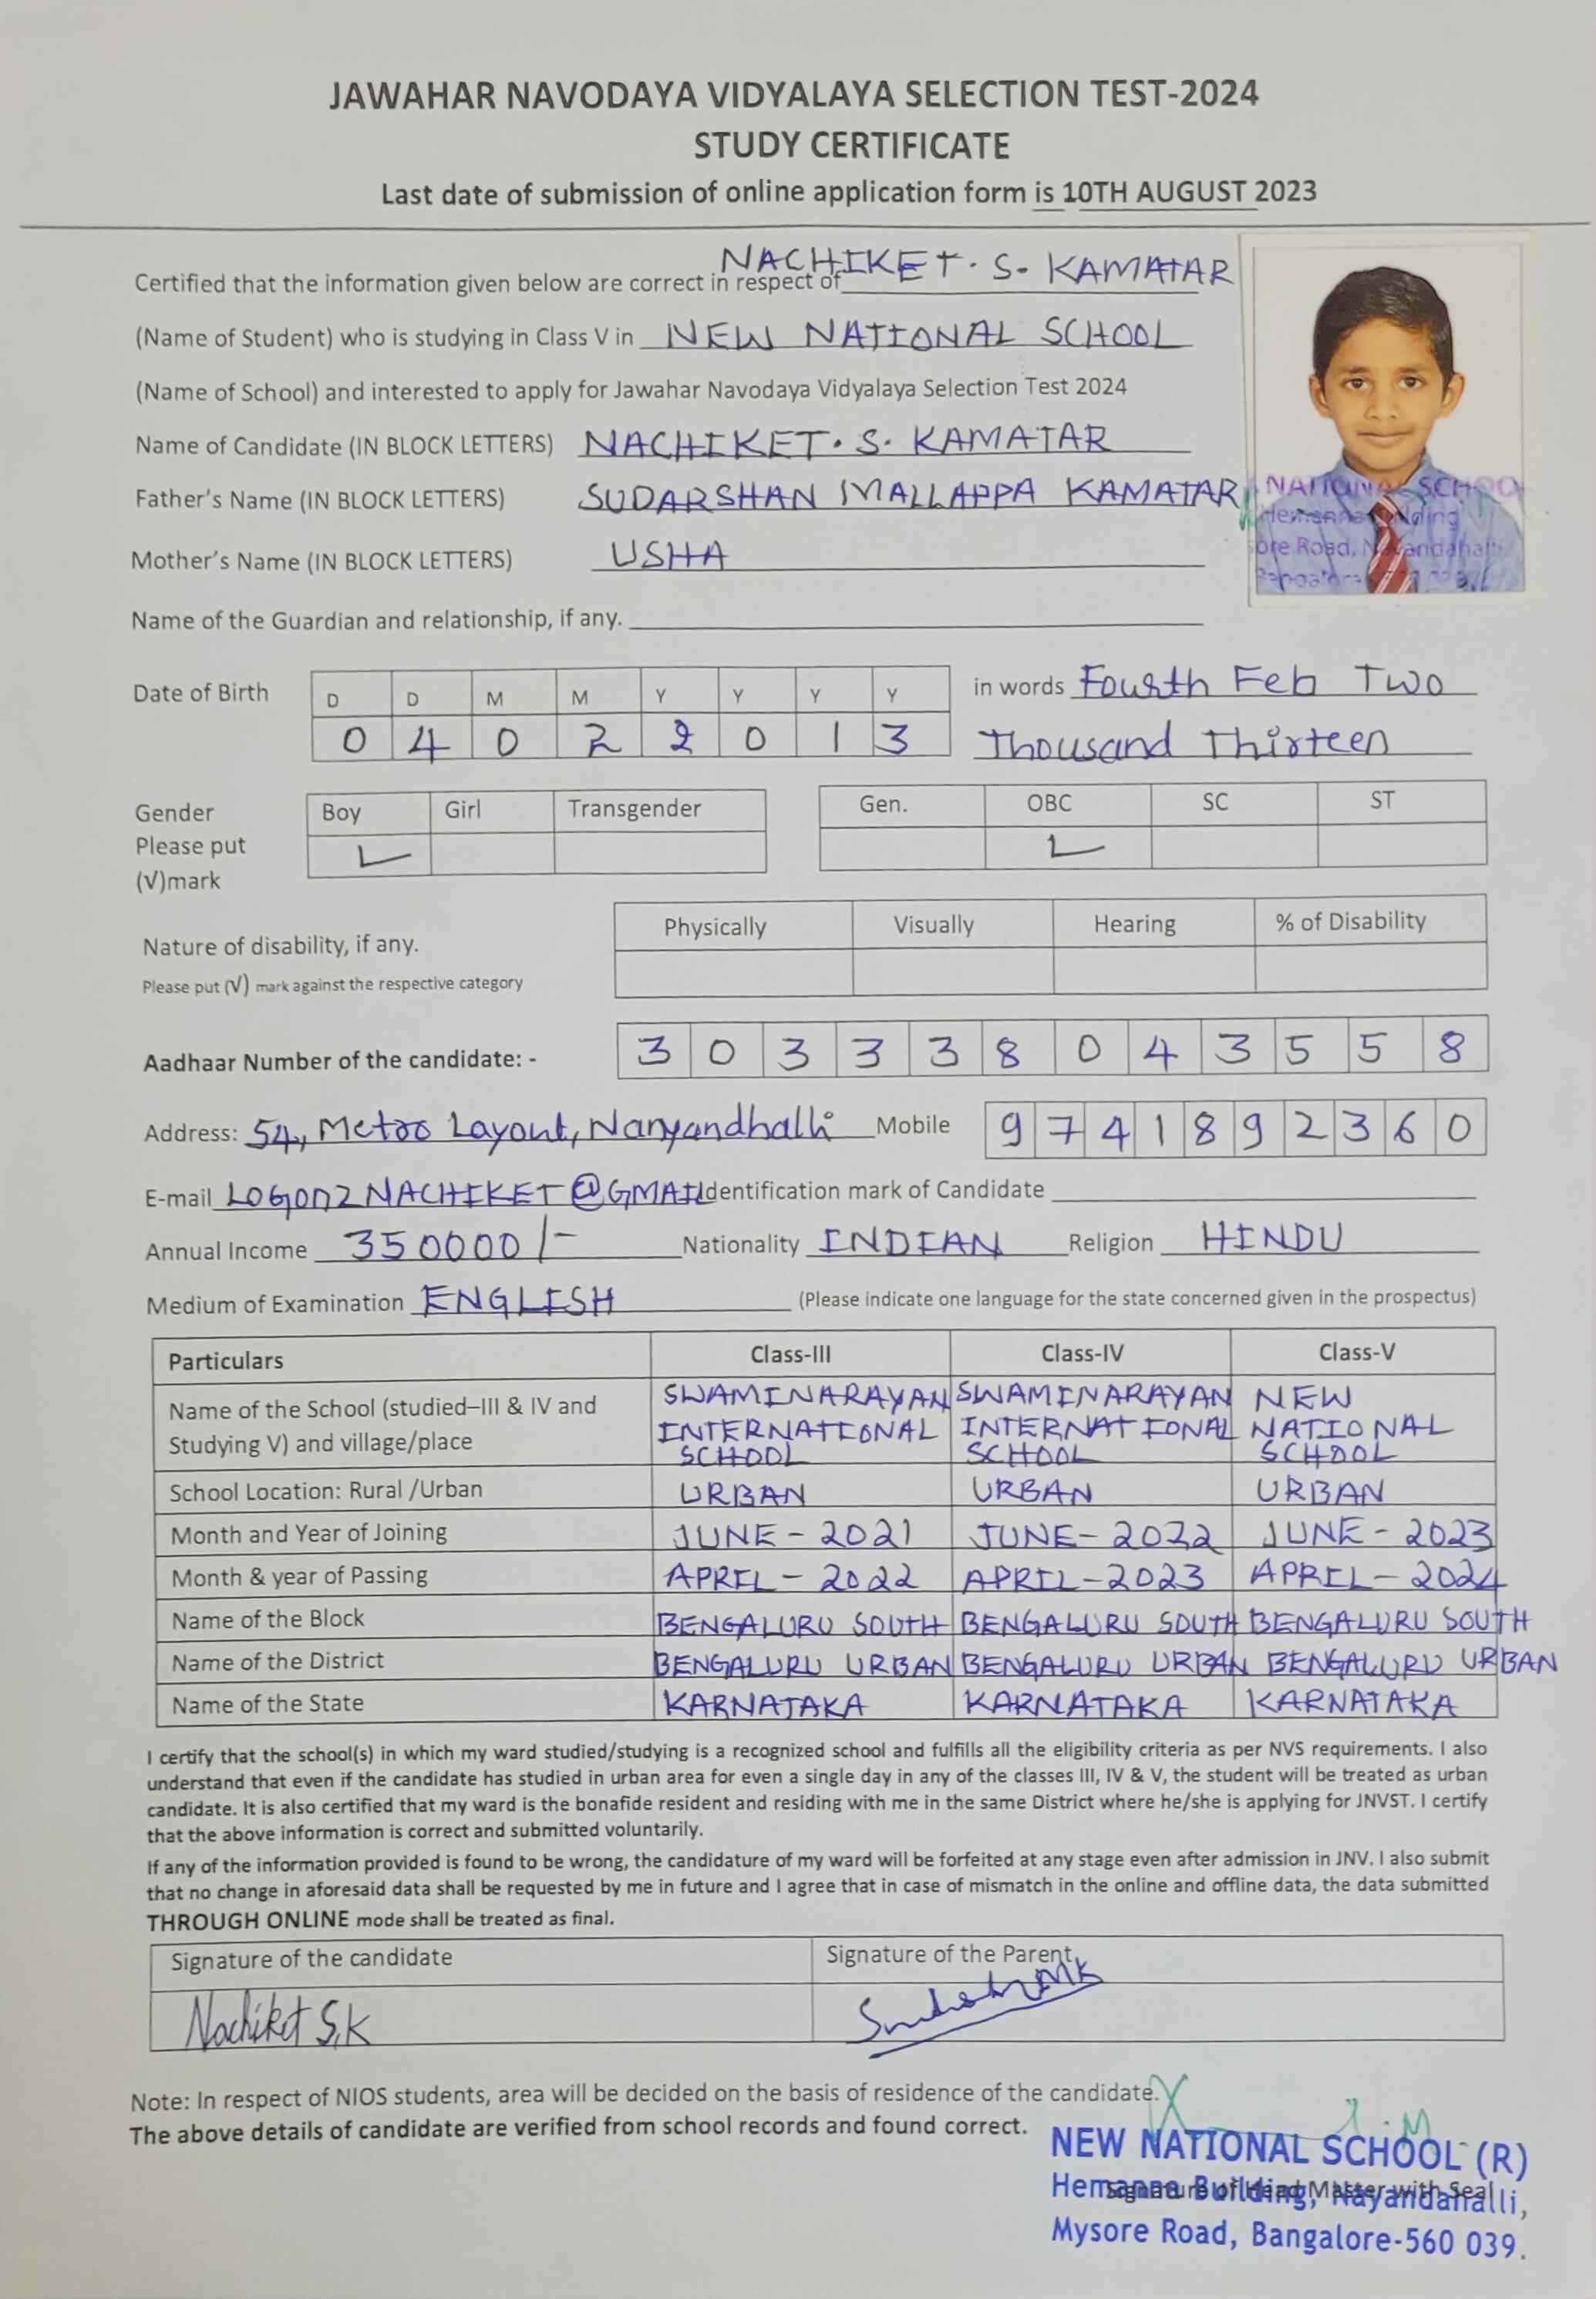 JAWAHAR NAVODAYA VIDYALAYA SELECTION TEST-2024
STUDY CERTIFICATE
Last date of submission of online application form is 10TH AUGUST 2023
Certified that the information given below are correct in respect of NACHIKET. S. KAMATAR
(Name of Student) who is studying in Class V in NEW NATIONAL SCHOOL
(Name of School) and interested to apply for Jawahar Navodaya Vidyalaya Selection Test 2024
Name of Candidate (IN BLOCK LETTERS) NACHIKET. S. KAMATAR
Father's Name (IN BLOCK LETTERS) SUDARSHAN MALLAPPA KAMATAR
NATIONAL SCHOO
Hemanna ilding
ore Road, Nayandahalli
Bangalore
Mother's Name (IN BLOCK LETTERS) USHA
Name of the Guardian and relationship, if any.
Date of Birth D D M M Y Y Y Y in words Fourth Feb Two
0 4 0 2 2 0 1 3 Thousand Thirteen
Gender Boy Girl Transgender Gen. OBC SC ST
Please put
(V)mark
Physically Visually Hearing % of Disability
Nature of disability, if any.
Please put (V) mark against the respective category
Aadhaar Number of the candidate: - 3 0 3 3 3 8 0 4 3 5 5 8
Address: 54, Metro Layout, Nanyandhalli Mobile 9 7 4 1 8 9 2 3 6 0
E-mail LOGON2NACHIKET@GMAIL Identification mark of Candidate
Annual Income 350000/- Nationality INDIAN Religion HINDU
Medium of Examination ENGLISH (Please indicate one language for the state concerned given in the prospectus)
Particulars Class-III Class-IV Class-V
Name of the School (studied–III & IV and SWAMINARAYAN SWAMINARAYAN NEW
Studying V) and village/place INTERNATIONAL INTERNATIONAL NATIONAL
SCHOOL SCHOOL SCHOOL
School Location: Rural /Urban URBAN URBAN URBAN
Month and Year of Joining JUNE - 2021 JUNE - 2022 JUNE - 2023
Month & year of Passing APRIL - 2022 APRIL-2023 APRIL - 2024
Name of the Block BENGALURU SOUTH BENGALURU SOUTH BENGALURU SOUTH
Name of the District BENGALURU URBAN BENGALURU URBAN BENGALURU URBAN
Name of the State KARNATAKA KARNATAKA KARNATAKA
I certify that the school(s) in which my ward studied/studying is a recognized school and fulfills all the eligibility criteria as per NVS requirements. I also
understand that even if the candidate has studied in urban area for even a single day in any of the classes III, IV & V, the student will be treated as urban
candidate. It is also certified that my ward is the bonafide resident and residing with me in the same District where he/she is applying for JNVST. I certify
that the above information is correct and submitted voluntarily.
If any of the information provided is found to be wrong, the candidature of my ward will be forfeited at any stage even after admission in JNV. I also submit
that no change in aforesaid data shall be requested by me in future and I agree that in case of mismatch in the online and offline data, the data submitted
THROUGH ONLINE mode shall be treated as final.
Signature of the candidate Signature of the Parent
Nachiket S.K
Note: In respect of NIOS students, area will be decided on the basis of residence of the candidate.
The above details of candidate are verified from school records and found correct.
NEW NATIONAL SCHOOL (R)
Signature of Head Master with Seal
Hemanna Building, Nayandahalli,
Mysore Road, Bangalore-560 039.